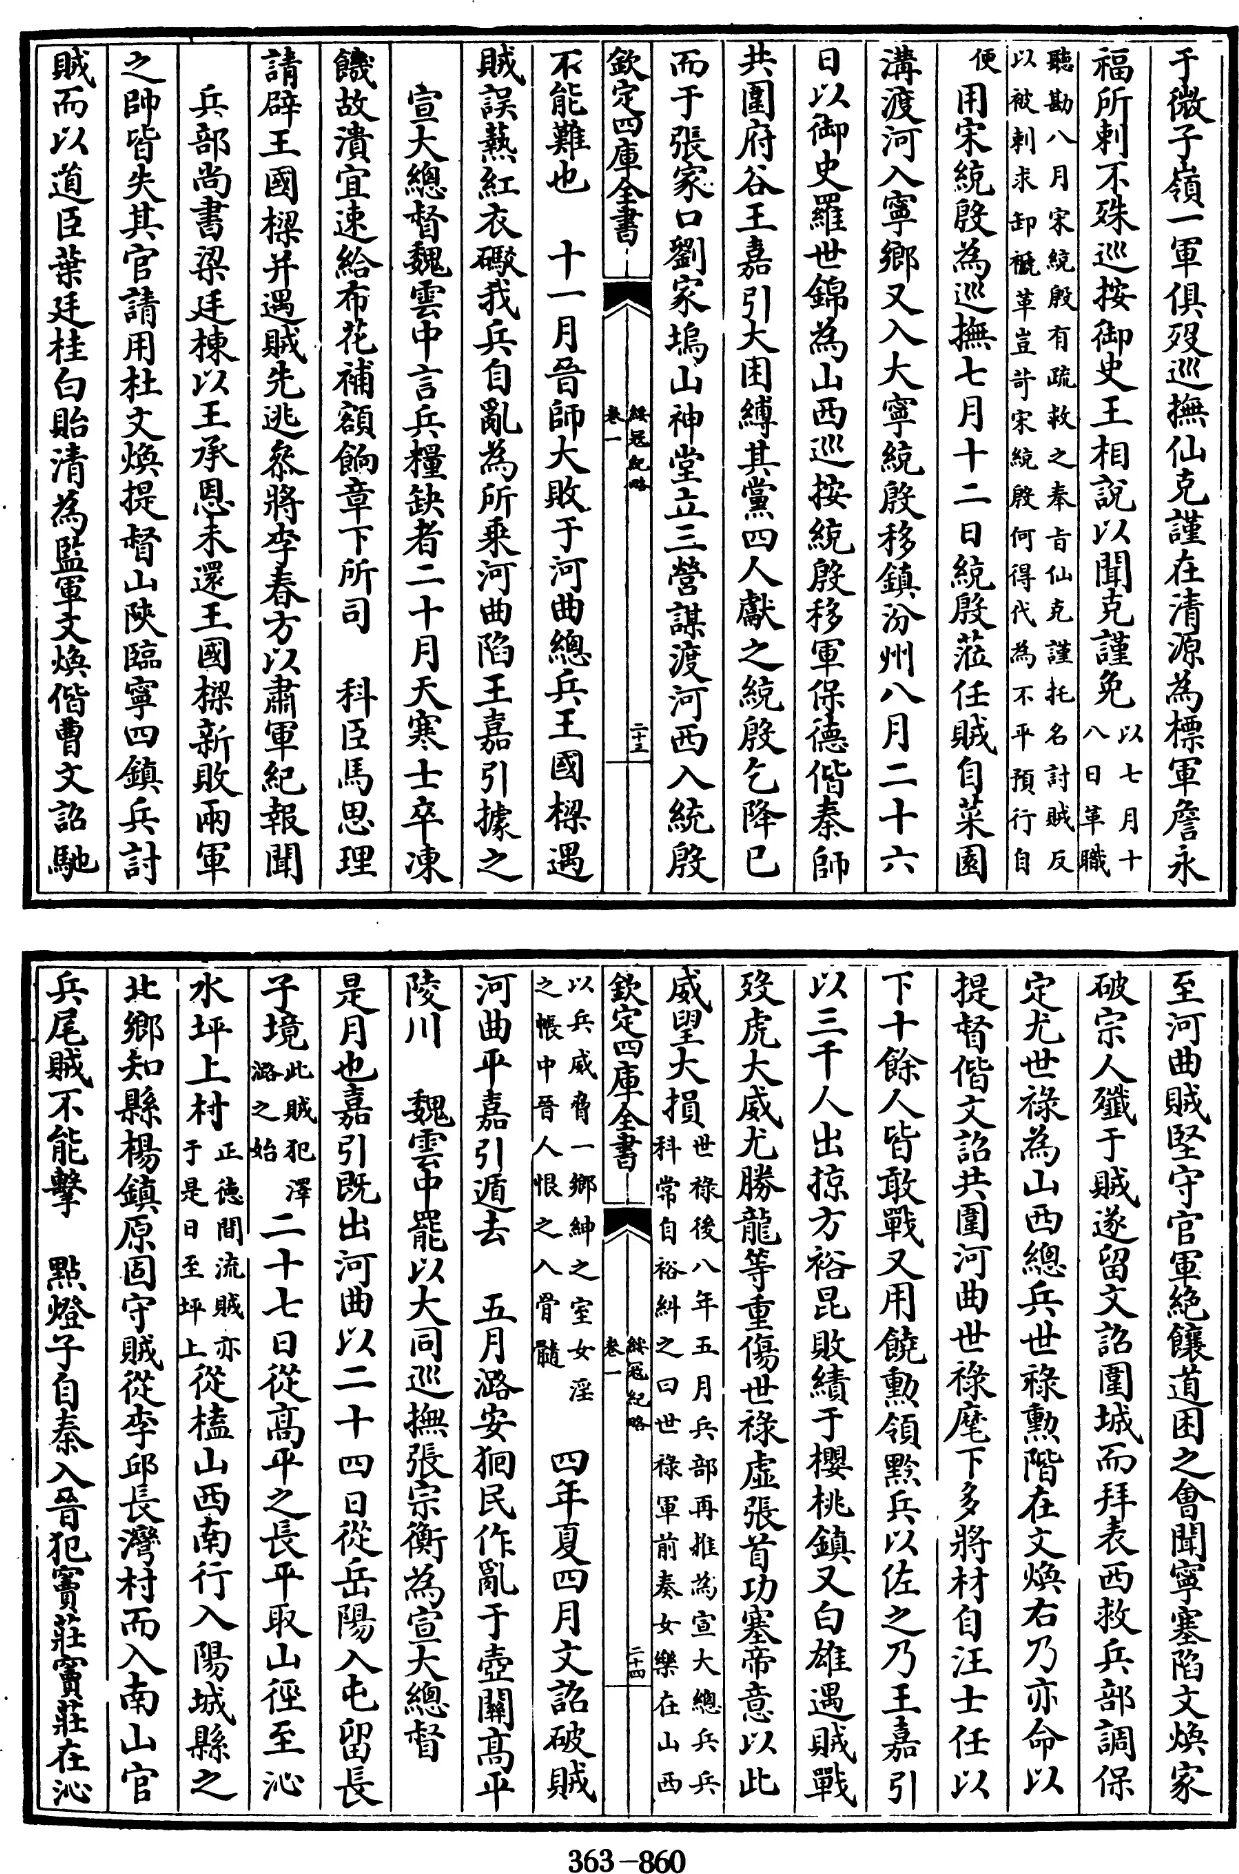 于微子嶺一軍俱歿巡撫仙克謹在清源為標軍詹永
福所刺不殊巡按御史王相說以聞克謹免以七月十八日革職
聽勘八月宋統殷有疏救之奉旨仙克謹托名討賊反
以被刺求卸褫革豈苛宋統殷何得代為不平預行自
便用宋統殷為巡撫七月十二日統殷蒞任賊自菜園
溝渡河入寧鄉又入大寧統殷移鎮汾州八月二十六
日以御史羅世錦為山西巡按統殷移軍保德偕秦師
共圍府谷王嘉引大困縛其黨四人獻之統殷乞降已
而于張家口劉家塢山神堂立三營謀渡河西入統殷
欽定四庫全書
綏寇紀略
卷一
二十三
不能難也　十一月晉師大敗于河曲總兵王國樑遇
賊誤爇紅衣礮我兵自亂為所乘河曲陷王嘉引據之
宣大總督魏雲中言兵糧缺者二十月天寒士卒凍
饑故潰宜速給布花補額餉章下所司　科臣馬思理
請辟王國樑并遇賊先逃叅將李春方以肅軍紀報聞
兵部尚書梁廷棟以王承恩未還王國樑新敗兩軍
之帥皆失其官請用杜文煥提督山陝臨寧四鎮兵討
賊而以道臣葉廷桂白貽清為監軍文煥偕曹文詔馳
至河曲賊堅守官軍絕饟道困之會聞寧塞陷文煥家
破宗人殲于賊遂留文詔圍城而拜表西救兵部調保
定尤世祿為山西總兵世祿勲階在文煥右乃亦命以
提督偕文詔共圍河曲世祿麾下多將材自汪士任以
下十餘人皆敢戰又用饒勲領黔兵以佐之乃王嘉引
以三千人出掠方裕昆敗績于櫻桃鎮又白雄遇賊戰
歿虎大威尤勝龍等重傷世祿虛張首功塞帝意以此
威望大損世祿後八年五月兵部再推為宣大總兵兵
科常自裕糾之曰世祿軍前奏女樂在山西
欽定四庫全書
綏寇紀略
卷一
二十四
以兵威脅一鄉紳之室女淫
之帳中晉人恨之入骨髓　四年夏四月文詔破賊
河曲平嘉引遁去　五月潞安狪民作亂于壺關高平
陵川　魏雲中罷以大同巡撫張宗衡為宣大總督
是月也嘉引既出河曲以二十四日從岳陽入屯留長
子境此賊犯澤潞之始二十七日從高平之長平取山徑至沁
水坪上村正德間流賊亦于是日至坪上從榼山西南行入陽城縣之
北鄉知縣楊鎮原固守賊從李邱長灣村而入南山官
兵尾賊不能擊　點燈子自秦入晉犯竇莊竇莊在沁
363-860